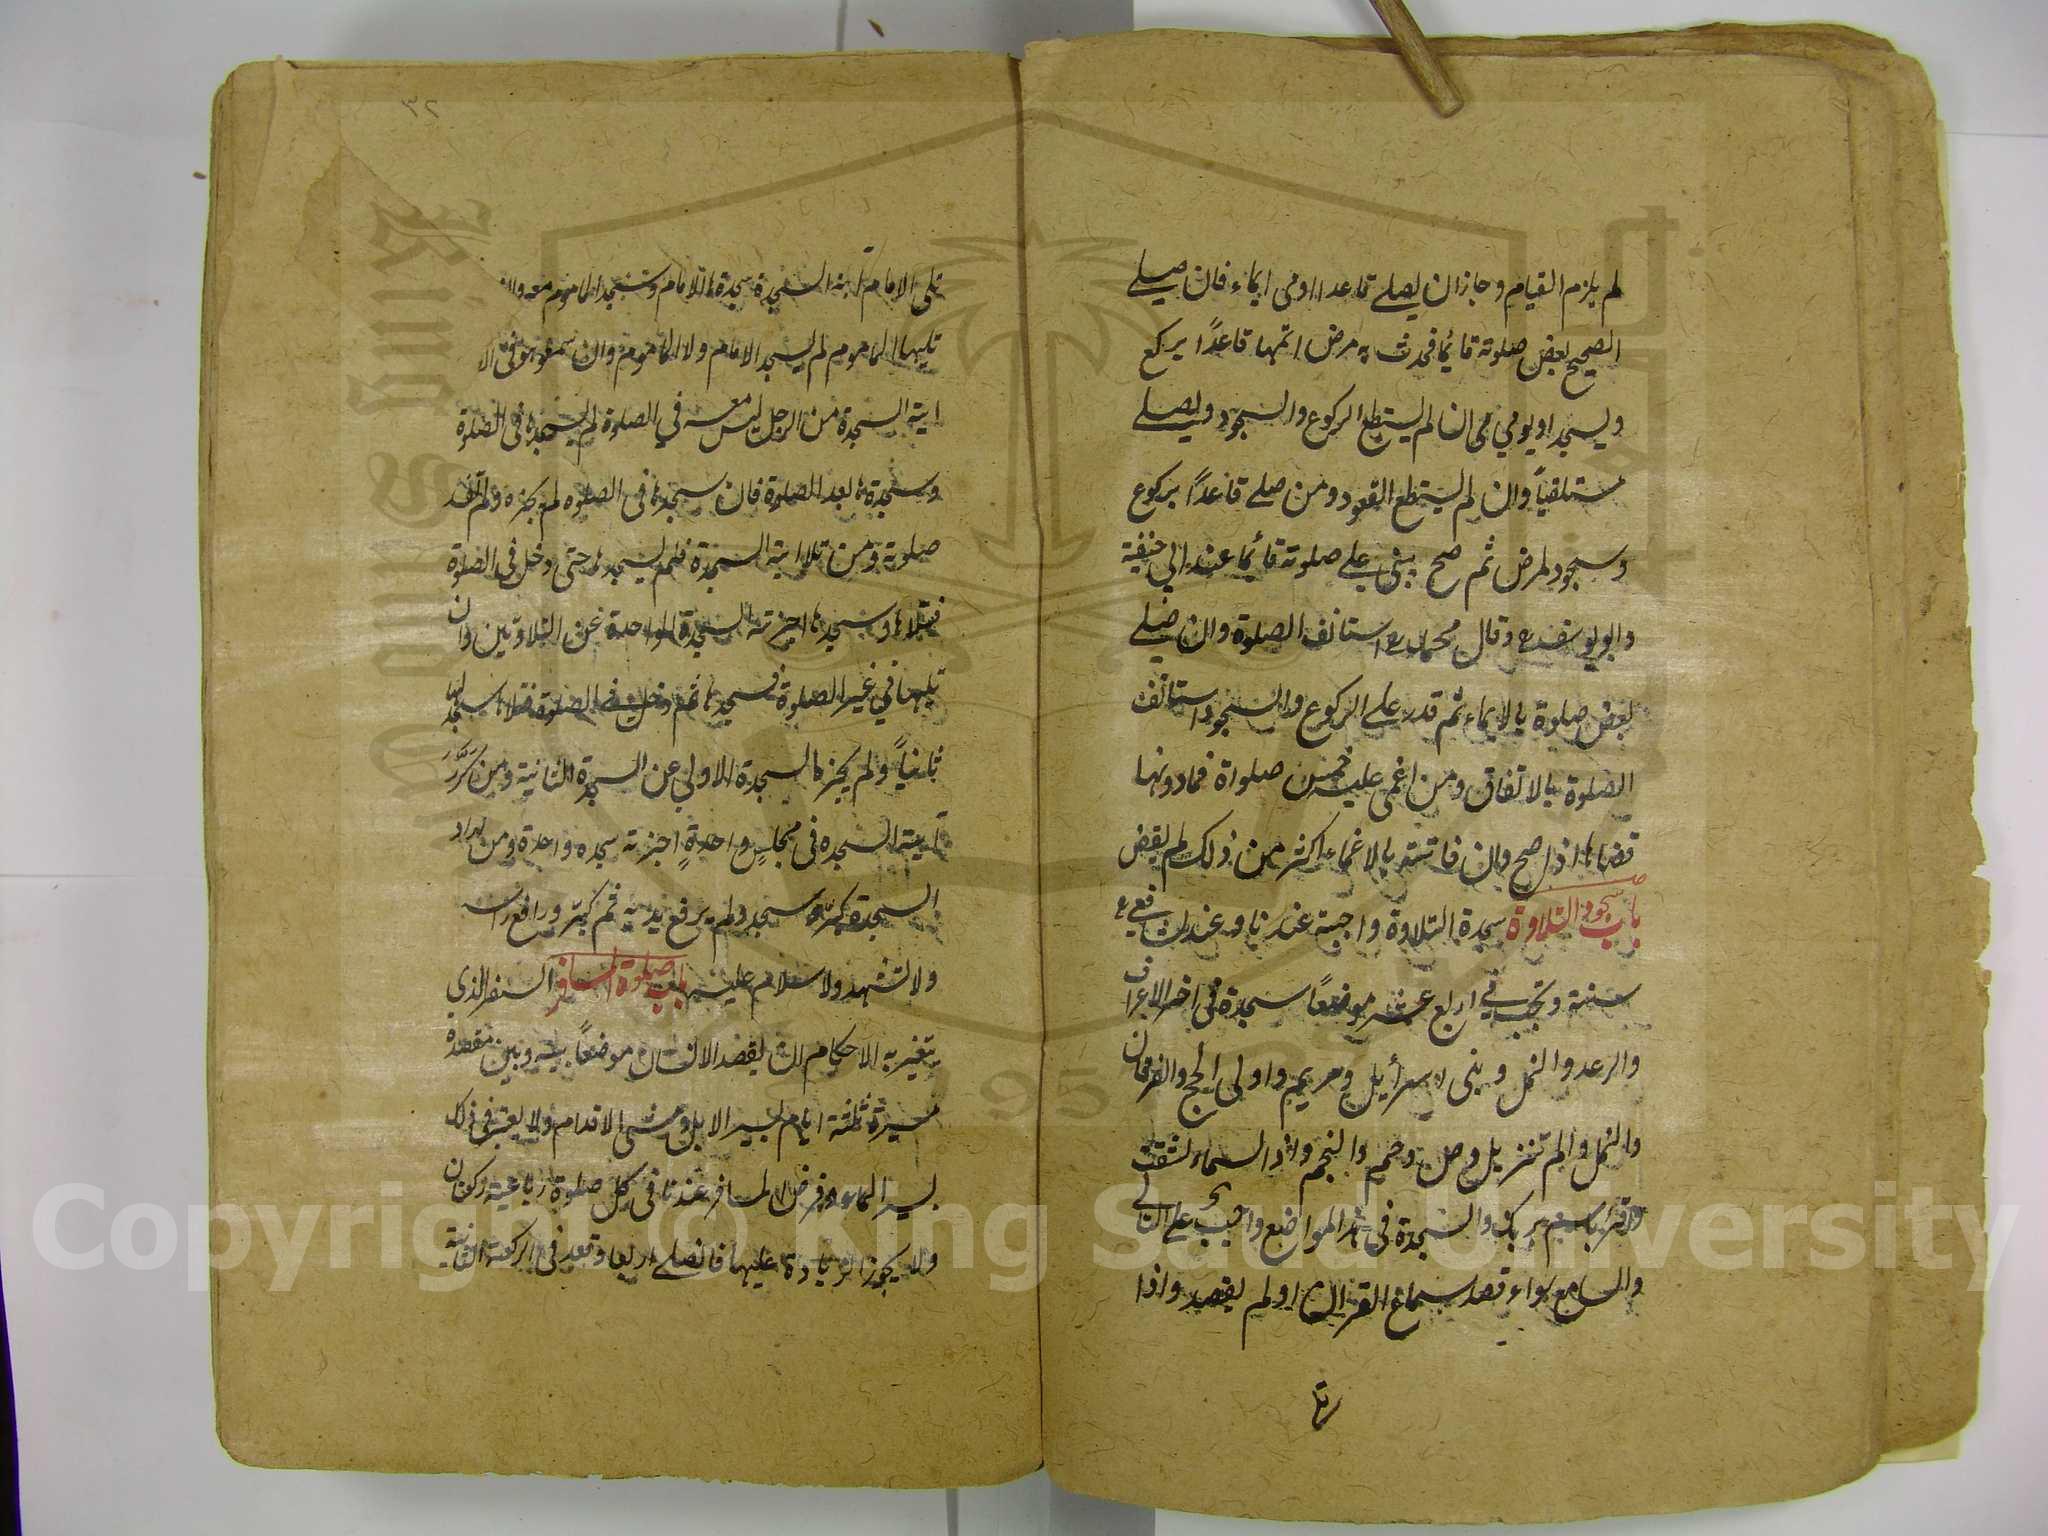 لم يلزم القيام وجاز ان يصلي قاعدا اومى ايماء فان صلى
الصحيح بعض صلوته قائما فحدث به مرض اتمها قاعدًا يركع
ويسجد او يومي ان لم يستطع الركوع والسجود ويصلي
مستلقياً وان لم يستطع القعود ومن صلى قاعدًا بركوع
وسجود لمرض ثم صح بنى على صلوته قائما عند ابي حنيفة
وابو يوسف وقال محمد استانف الصلوة وان صلى
بعض صلوة بالايماء ثم قدر على الركوع والسجود استانف
الصلوة بالاتفاق ومن اغمى عليه خمس صلواة فما دونها
قضاها اذا صح وان فاتته بالاغماء اكثر من ذلك لم يقض
باب سجود التلاوة سجدة التلاوة واجبة عندنا وعند الشافعي
سنة وتجب في اربع عشر موضعًا سجدة في اخر الاعراف
والرعد والنحل وبنى اسرأيل ومريم واولى الحج والفرقان
والنمل والم تنزيل وص وحم والنجم واذا السماء انشقت
واقرا باسم ربك والسجدة في هذا المواضع واجب على التالي
والسامع سواء قصد سماع القران او لم يقصد واذا
تلا
٣٢
تلى الامام اية السجدة سجدها الامام وسجد الماموم معه وان
تليها الماموم لم يسجد الامام ولا الماموم وان سمعو هو في الا
اية السجدة من الرجل ليس معه في الصلوة لم يسجدها في الصلوة
وسجدة ها بعد الصلوة فان سجدها في الصلوه لم يجزه ولم تفسد
صلوته ومن تلا اية السجدة فلم يسجدها حتى دخل في الصلوة
فتلاها وسجدها اجزته السجدة الواحدة عن التلاوتين وان
تليها في غير الصلوة فسجدها ثم دخل في الصلوة فتلاها سجد لها
ثانياً ولم يجزه السجدة الاولى عن السجدة الثانية ومن كَرَّرَ
آية السجده في مجلسٍ واحدةٍ اجزته سجده واحدة ومن اراد
السجدة كبّر وسجد ولم يرفع يديه ثم كبّر ورافع راسه
ولا تشهد ولا سلام عليه باب صلوة المسافر السفر الذي
يتغير به الاحكام ان يقصد الانسان موضعًا بينه وبين مقصده
مسيرة ثلثة ايام بسير الابل ومشى الاقدام ولا يعتبر في ذلك
بسير الماء وفرض المسافر عندنا في كل صلوة رباعية ركعتان
ولا يجوز الزيادة عليها فان صلى اربعا وقعد في الركعة الثانية
Copyright © King Saud University